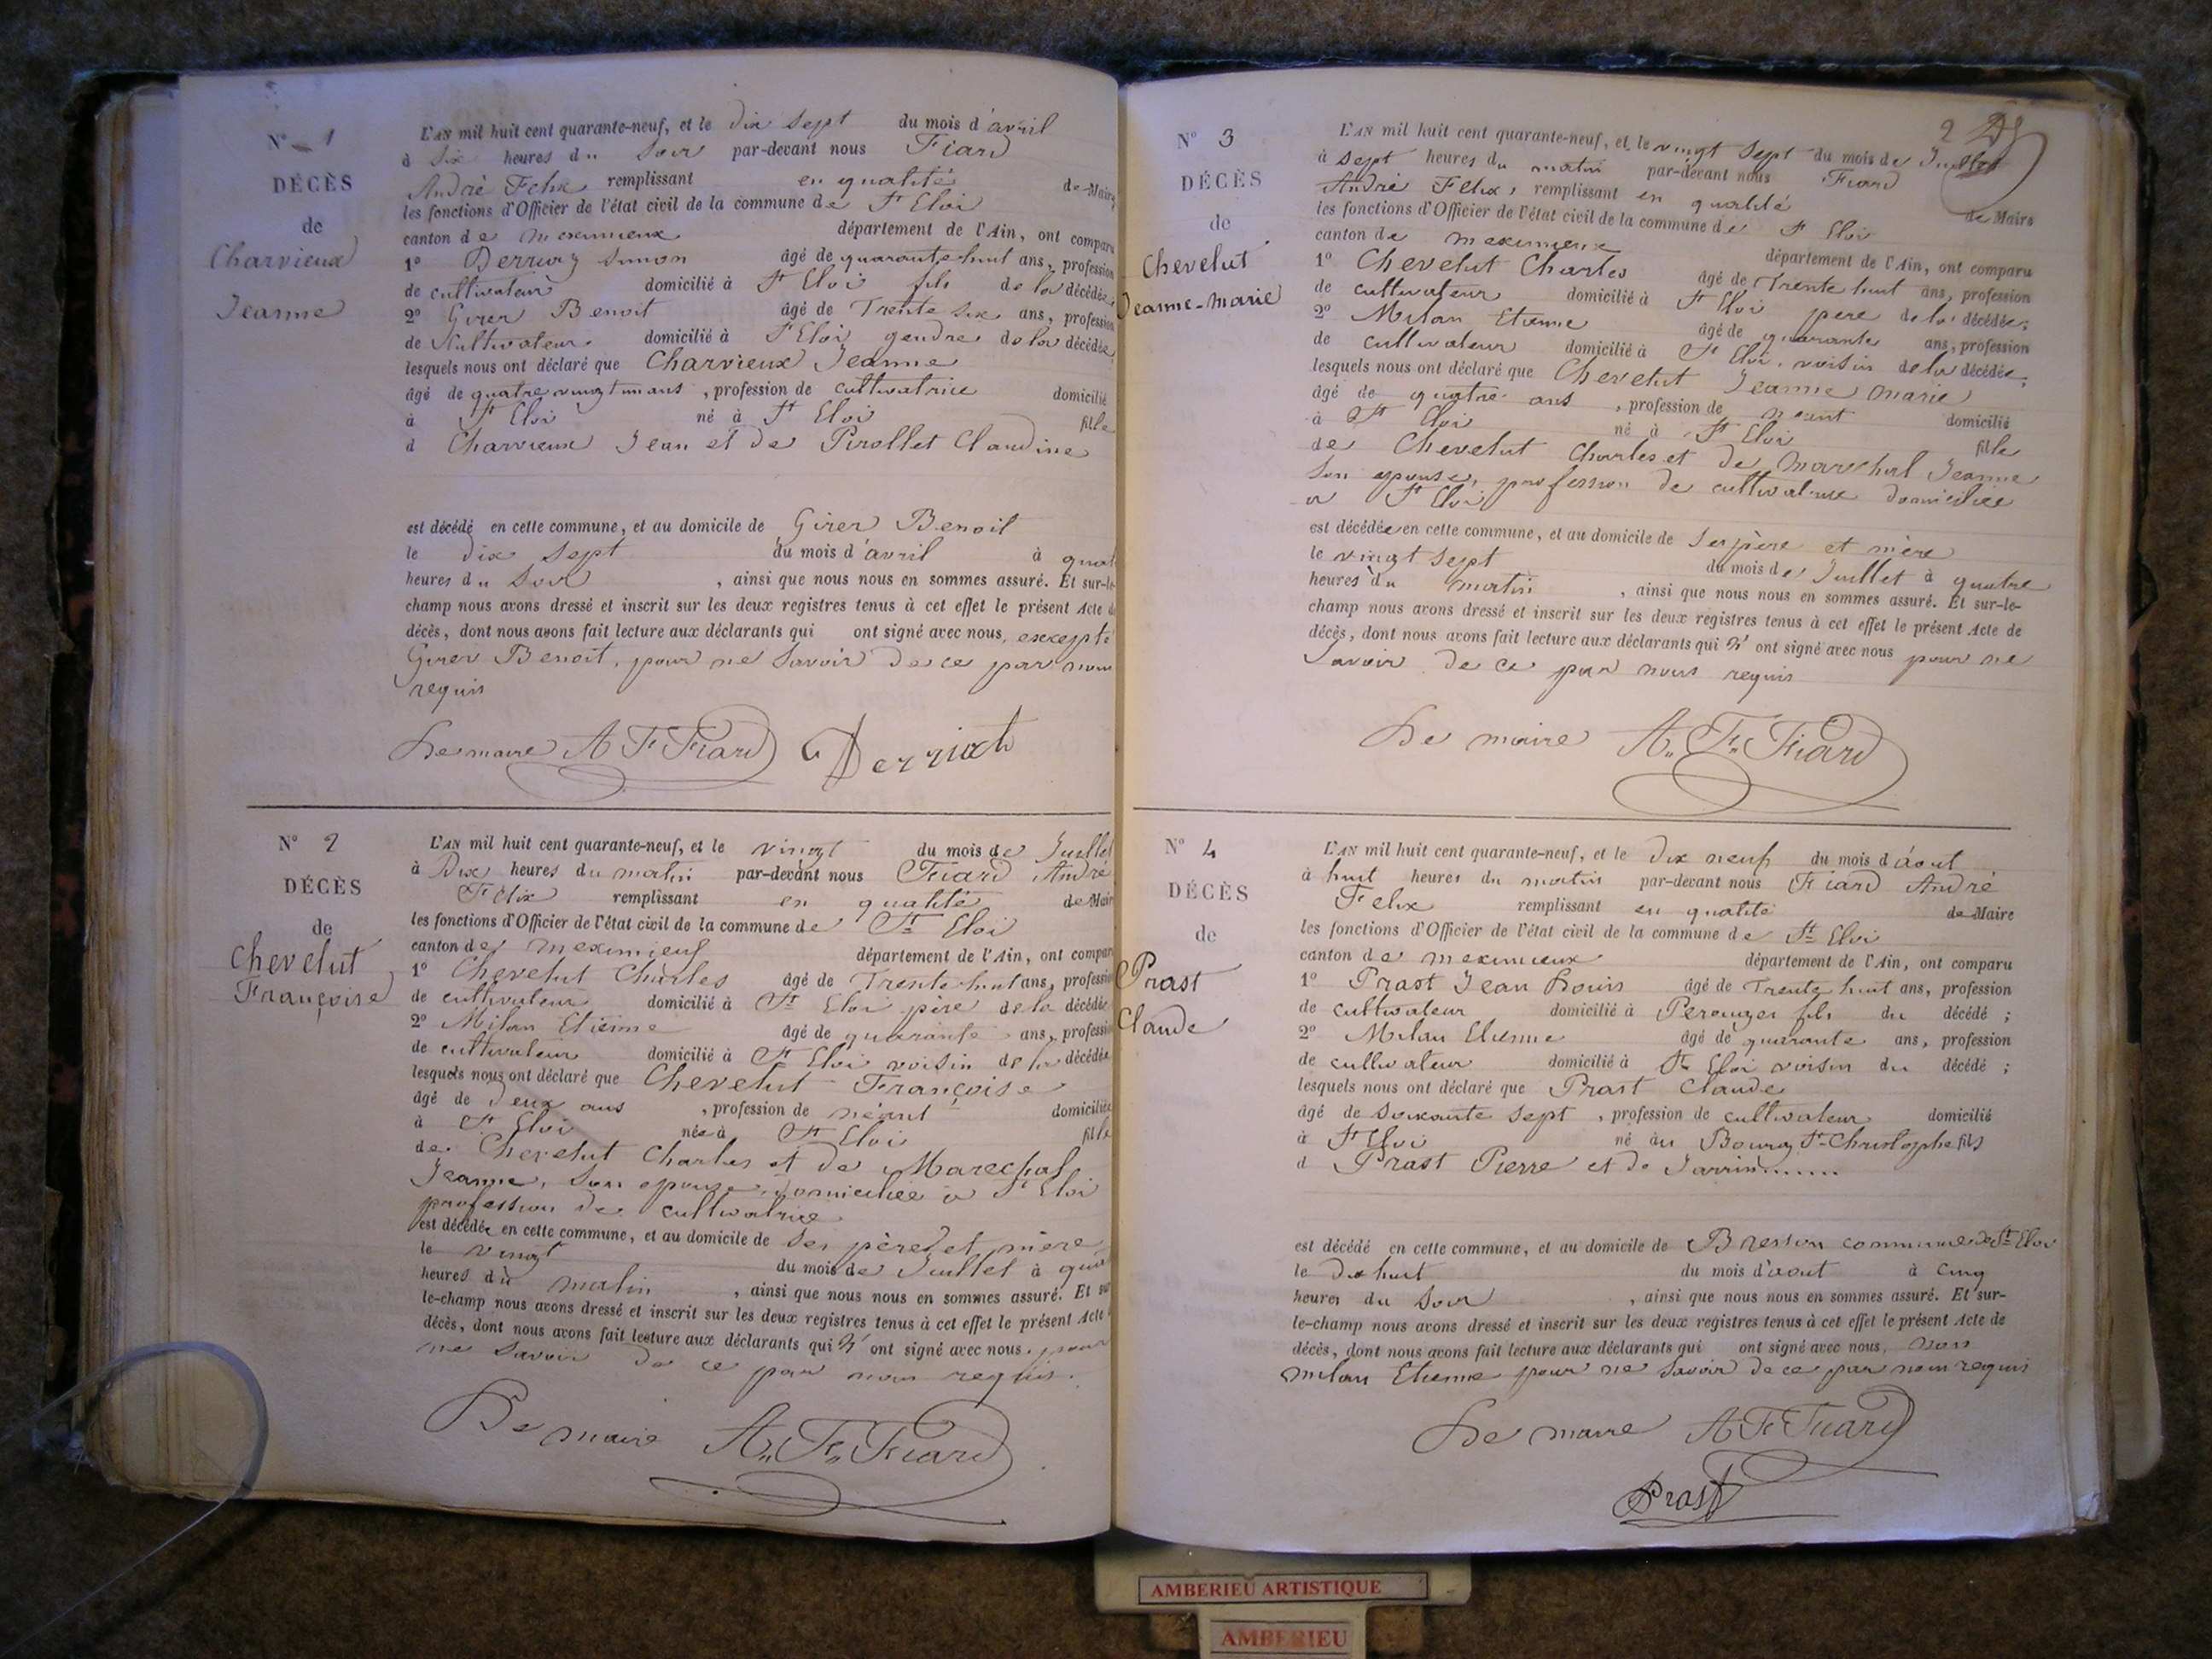 N° 1
DÉCÈS
de
Charvieux
Jeanne
L'AN mil huit cent quarante-neuf, et le dix sept du mois d'avril
à six heures du soir par-devant nous Fiard
André Felix remplissant en qualité de Maire
les fonctions d'Officier de l'état civil de la commune de St Eloi
canton de meximieux département de l'Ain, ont comparu
1° simon âgé de quarante-huit ans, profession
de cultivateur domicilié à St Eloi fils de la décédée,
2° Girer Benoit âgé de Trente six ans, profession
de Cultivateur domicilié à St Eloi gendre de la décédée,
lesquels nous ont déclaré que Charvieux Jeanne
âgé de quatre vingt un ans, profession de cultivatrice domicilié
à St Eloi né à St Eloi fille
d Charvieux Jean et de Pirollet Claudine
est décédé en cette commune, et au domicile de Girer Benoit
le dix sept du mois d'avril à quat
heures du Soir, ainsi que nous nous en sommes assuré. Et sur-le-
champ nous avons dressé et inscrit sur les deux registres tenus à cet effet le présent Acte d
décès, dont nous avons fait lecture aux déclarants qui ont signé avec nous, excepté
Girer Benoit, pour ne Savoir de ce par nous
requis
Le maire A F Fiard
N° 2
DÉCÈS
de
Chevelut
Françoise
L'AN mil huit cent quarante-neuf, et le vingt du mois de Juillet
à Dix heures du matin par-devant nous Fiard André
Félix remplissant en qualité de Mair
les fonctions d'Officier de l'état civil de la commune de St Eloi
canton de meximieux département de l'Ain, ont compar
1° Chevelut Charles âgé de Trente-huit ans, professi
de cultivateur domicilié à St Eloi père de la décédée
2° Milan Etienne âgé de quarante ans, professi
de cultivateur domicilié à St Eloi voisin de la décédée
lesquels nous ont déclaré que Chevelut Françoise
âgé de Deux ans, profession de néant domiciliée
à St Eloi née à St Eloi fille
de Chevelut Charles et de Marechal
Jeanne, son epouse, domiciliée à St Eloi
profession de cultivatrice
est décédée en cette commune, et au domicile de ses père et mère
le vingt du mois de Juillet à qua
heures du matin, ainsi que nous nous en sommes assuré. Et sur
le-champ nous avons dressé et inscrit sur les deux registres tenus à cet effet le présent Acte
décès, dont nous avons fait lecture aux déclarants qui n' ont signé avec nous. pour
ne Savoir de ce par nous requis.
Le maire A„ F„ Fiard
2
N° 3
DÉCÈS
de
Chevelut
Jeanne-Marie
L'AN mil huit cent quarante-neuf, et le vingt sept du mois de Juillet
à sept heures du matin par-devant nous Fiard
André Felix, remplissant en qualité de Maire
les fonctions d'Officier de l'état civil de la commune de St Eloi
canton de meximieux département de l'Ain, ont comparu
1° Chevelut Charles âgé de Trente huit ans, profession
de cultivateur domicilié à St Eloi pere de la décédée;
2° Milan Etienne âgé de quarante ans, profession
de cultivateur domicilié à St Eloi, voisin de la décédée;
lesquels nous ont déclaré que Chevelut Jeanne Marie
âgé de quatre ans, profession de néant domicilié
à St Eloi né à St Eloi fille
de Chevelut Charles et de Marechal Jeanne
Son epouse, profession de cultivatrice domiciliée
a St Eloi
est décédée en cette commune, et au domicile de Ses père et mère
le vingt sept du mois de Juillet à quatre
heures du matin, ainsi que nous nous en sommes assuré. Et sur-le-
champ nous avons dressé et inscrit sur les deux registres tenus à cet effet le présent Acte de
décès, dont nous avons fait lecture aux déclarants qui n' ont signé avec nous pour ne
Savoir de ce par nous requis
Le maire A„ F„ Fiard
N° 4
DÉCÈS
de
Prast
Claude
L'AN mil huit cent quarante-neuf, et le dix neuf du mois d'aout
à huit heures du matin par-devant nous Fiard André
Felix remplissant en qualité de Maire
les fonctions d'Officier de l'état civil de la commune de St Eloi
canton de meximieux département de l'Ain, ont comparu
1° Prast Jean Louis âgé de Trente huit ans, profession
de cultivateur domicilié à Perouges fils du décédé;
2° Milan Etienne âgé de quarante ans, profession
de cultivateur domicilié à St Eloi voisin du décédé;
lesquels nous ont déclaré que Prast Claude
âgé de Soixante Sept, profession de cultivateur domicilié
à St Eloi né au Bourg St-Christophe fils
d Prast Pierre et de Jarrin.......
est décédé en cette commune, et au domicile de Bresson commune de St Eloi
le dix huit du mois d'aout à cinq
heures du Soir, ainsi que nous nous en sommes assuré. Et sur-
le-champ nous avons dressé et inscrit sur les deux registres tenus à cet effet le présent Acte de
décès, dont nous avons fait lecture aux déclarants qui ont signé avec nous, non
milan Etienne pour ne Savoir de ce par nous requis
Le maire A F Fiard
Prast
AMBERIEU ARTISTIQUE
AMBERIEU